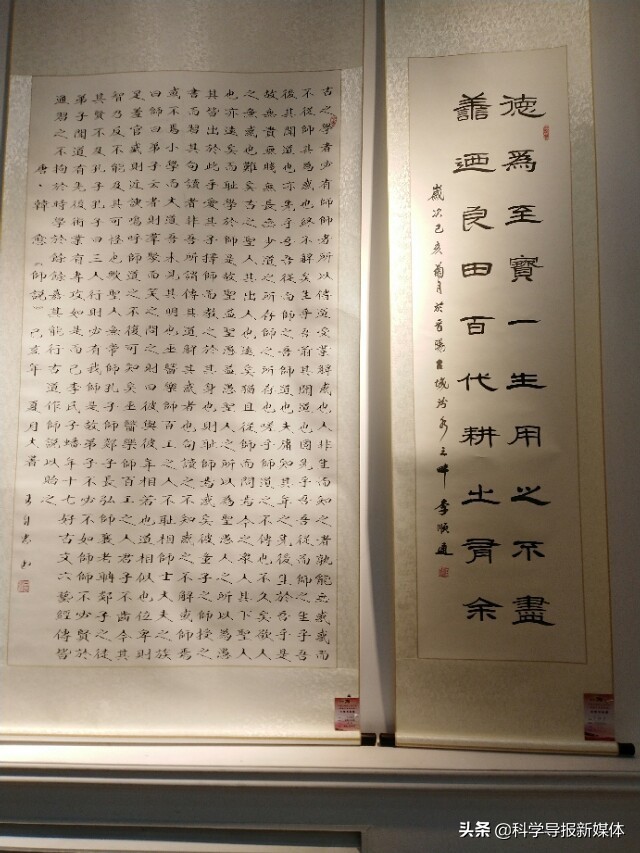 德為至寶一生用之不盡
譱迺良田百代耕之有余
歲次己亥菊月於晉陽古城汾水之畔 李順通
古之學者必有師師者所以傳道受業解惑也人非生而知之者孰能無惑惑而
不從師其為惑也終不解矣生乎吾前其聞道也固先乎吾吾從而師之生乎吾
後其聞道也亦先乎吾吾從而師之吾師道也夫庸知其年之先後生於吾乎是
故無貴無賤無長無少道之所存師之所存也嗟乎師道之不傳也久矣欲人
之無惑也難矣古之聖人其出人也遠矣猶且從師而問焉今之衆人其下聖人
也亦遠矣而恥學於師是故聖益聖愚益愚聖人之所以為聖愚人之所以為愚
其皆出於此乎愛其子擇師而教之於其身也則恥師焉惑矣彼童子之師授之
書而習其句讀者非吾所謂傳其道解其惑者也句讀之不知惑之不解或師焉
或不焉小學而大遺吾未見其明也巫醫樂師百工之人不恥相師士大夫之族
曰師曰弟子云者則群聚而笑之問之則曰彼與彼年相若也道相似也位卑則
足羞官盛則近諛嗚呼師道之不復可知矣巫醫樂師百工之人君子不齒今其
智乃反不能及其可怪也歟聖人無常師孔子師郯子萇弘師襄老聃郯子之徒
其賢不及孔子孔子曰三人行則必有我師是故弟子不必不如師師不必賢於
弟子聞道有先後術業有專攻如是而已李氏子蟠年十七好古文六藝經傳皆
通習之不拘於時學於余余嘉其能行古道作師說以貽之
唐·韓愈《師說》己亥年夏月大暑
头条 @科学导报新媒体